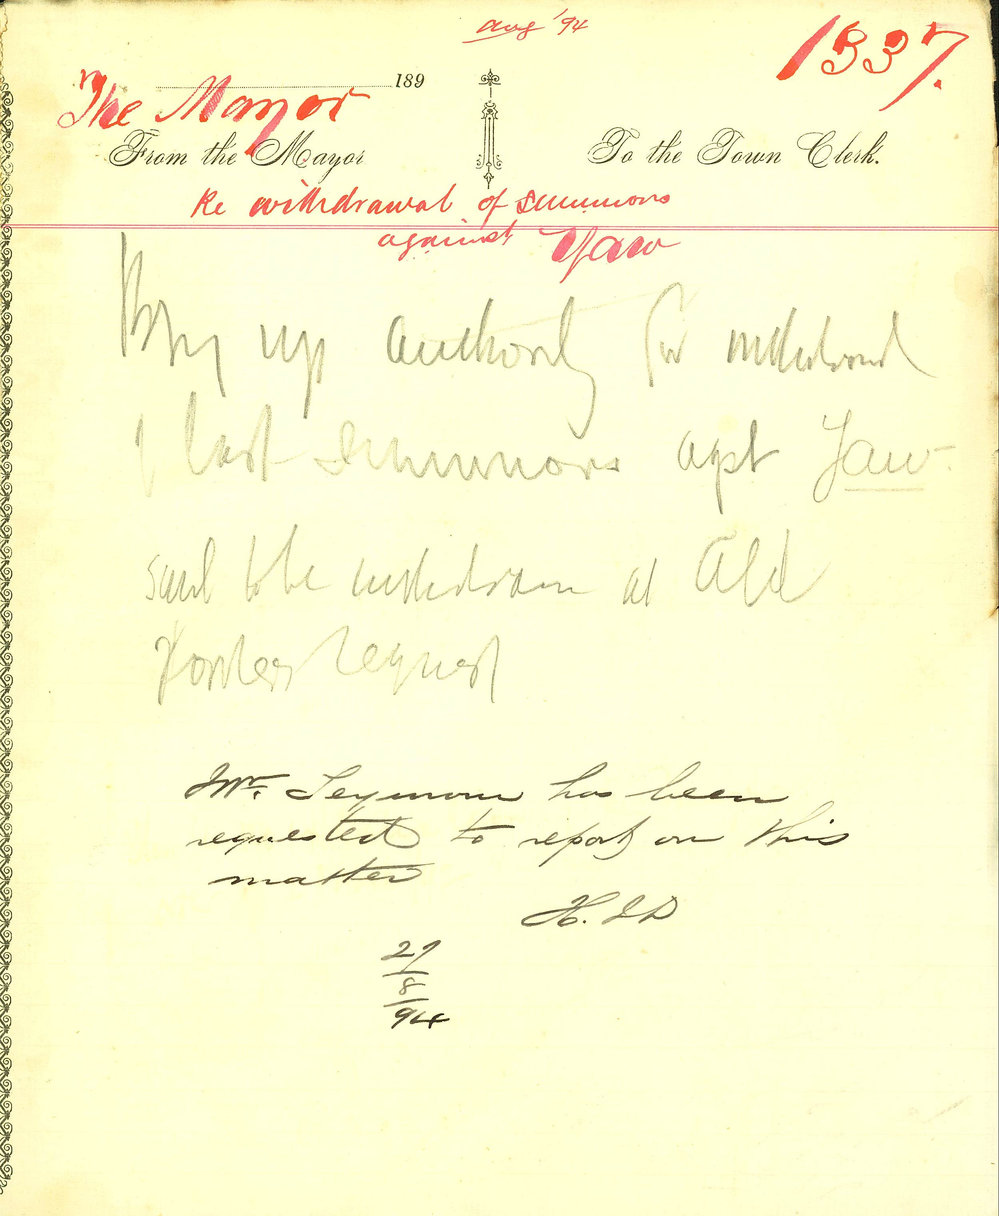 Aug '94
1337.
189
The Mayor
From the Mayor
To the Town Clerk.
Re withdrawal of summons
against Yaw
Bring up authority for withdrawal
of last summons agst Yaw.
said to be withdrawn at Ald
Forsters request
Mr. Seymour has been
requested to report on this
matter
27
8
94